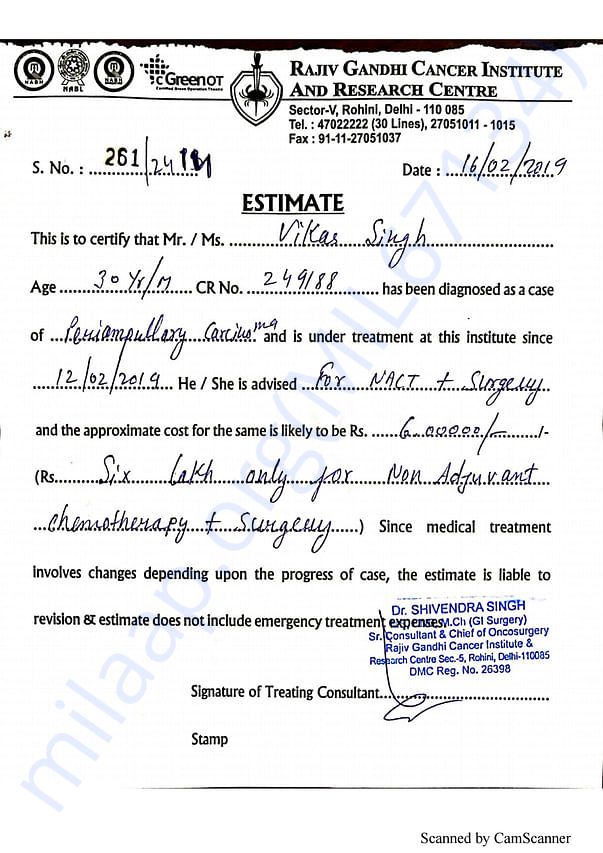 NABH NABL NABH Greenot
Certified Green Operation Theatre
RAJIV GANDHI CANCER INSTITUTE
AND RESEARCH CENTRE
Sector-V, Rohini, Delhi - 110 085
Tel. : 47022222 (30 Lines), 27051011 - 1015
Fax : 91-11-27051037
S. No. : 261/24 Date : 16/02/2019
ESTIMATE
This is to certify that Mr. / Ms. Vikas Singh
Age 30 Yr/M CR No. 249188 has been diagnosed as a case
of Periampullary Carcinoma and is under treatment at this institute since
12/02/2019 He / She is advised For NACT + Surgery
and the approximate cost for the same is likely to be Rs. 6,00000/- /-
(Rs Six lakh only for Non Adjuvant
chemotherapy + Surgery ) Since medical treatment
involves changes depending upon the progress of case, the estimate is liable to
revision & estimate does not include emergency treatment expenses.
Dr. SHIVENDRA SINGH
M.Ch (GI Surgery)
Sr. Consultant & Chief of Oncosurgery
Rajiv Gandhi Cancer Institute &
Research Centre Sec.-5, Rohini, Delhi-110085
DMC Reg. No. 26398
Signature of Treating Consultant
Stamp
milaap.org(MIL67134)
Scanned by CamScanner